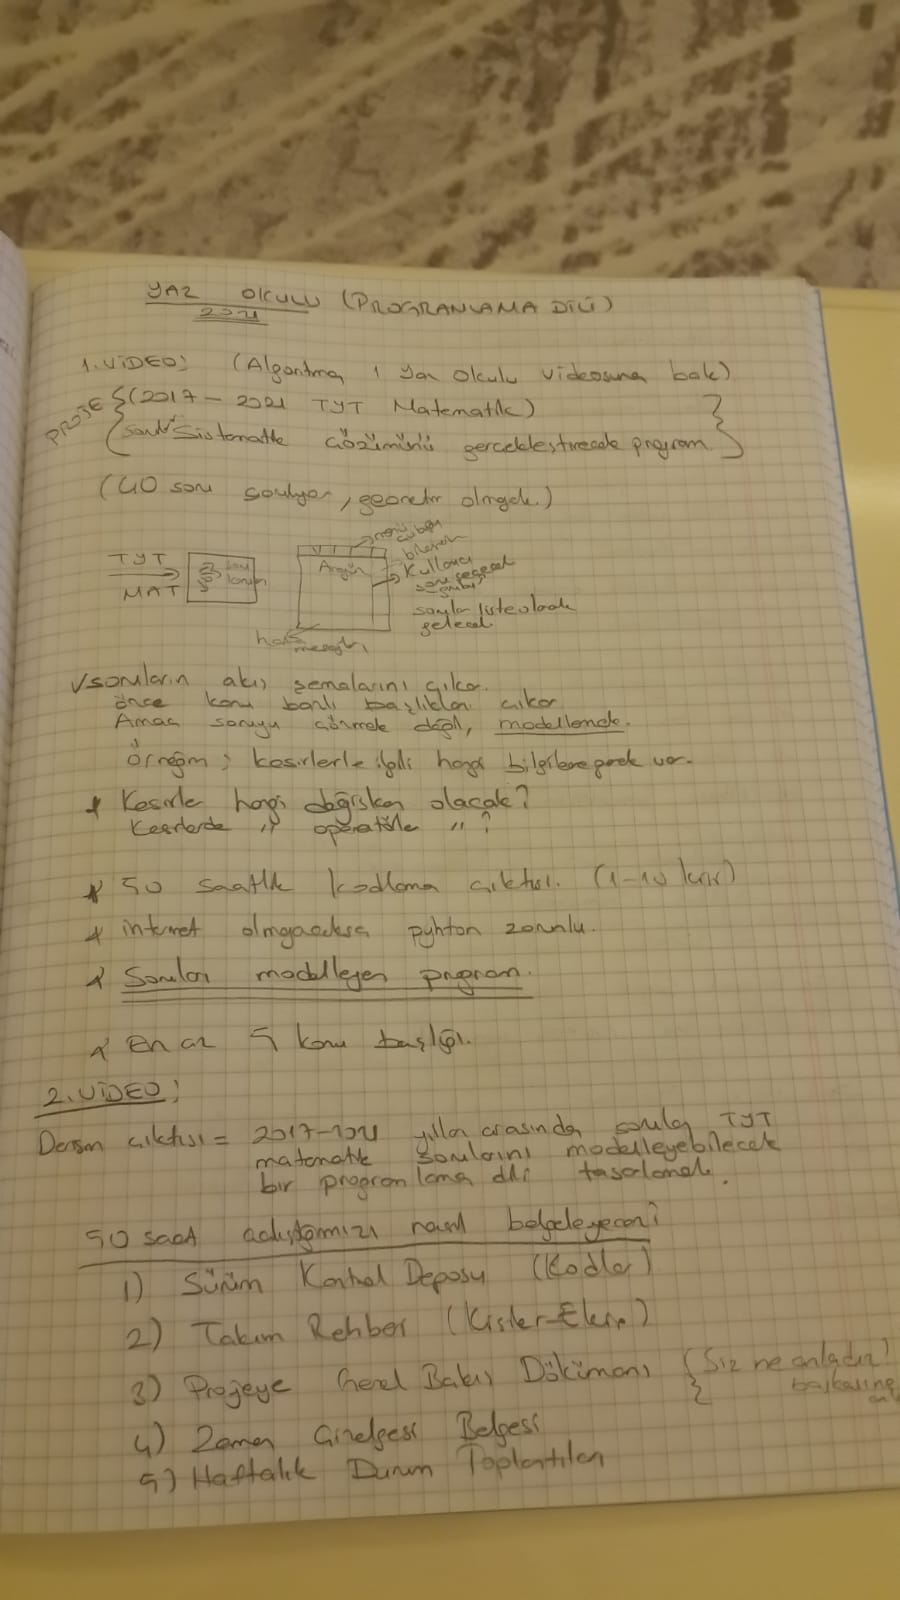 YAZ OKULU (PROGRANLAMA DİLİ)
2021
1. VİDEO: (Algoritma 1 Yaz Okulu videosuna bak)
PROJE {(2017 - 2021 TYT Matematik)
Sistematik çözümünü gerçekleştirecek program. }
(40 soru soruluyor, geometri olmayacak.)
TYT
MAT
Arayüz
Kullanıcı
soru seçecek
sorular liste olarak
gelecek.
hata
mesajları
√ soruların akış şemalarını çıkar.
önce konu bazlı başlıkları çıkar
Amaç soruyu çözmek değil, modellemek.
Örneğin; kesirlerle ilgili hangi bilgilere gerek var.
* Kesirler hangi değişken olacak?
Kesirlerde " operatörler " ?
* 50 saatlik kodlama çıktısı. (1-10 kişi)
* internet olmayacaksa pyhton zorunlu.
* Soruları modelleyen program.
* En az 5 konu başlığı.
2. VİDEO:
Dersin çıktısı = 2017-2021 yılları arasında sorulan TYT
matematik sorularını modelleyebilecek
bir programlama dili tasarlamak.
50 saat çalıştığımızı nasıl belgeleyeceğiz?
1) Sürüm Kontrol Deposu (Kodlar)
2) Takım Rehberi (Kişiler-Ekip)
3) Projeye Genel Bakış Dökümanı { Siz ne anladınız!
başkasına
4) Zaman Çizelgesi Belgesi
5) Haftalık Durum Toplantıları